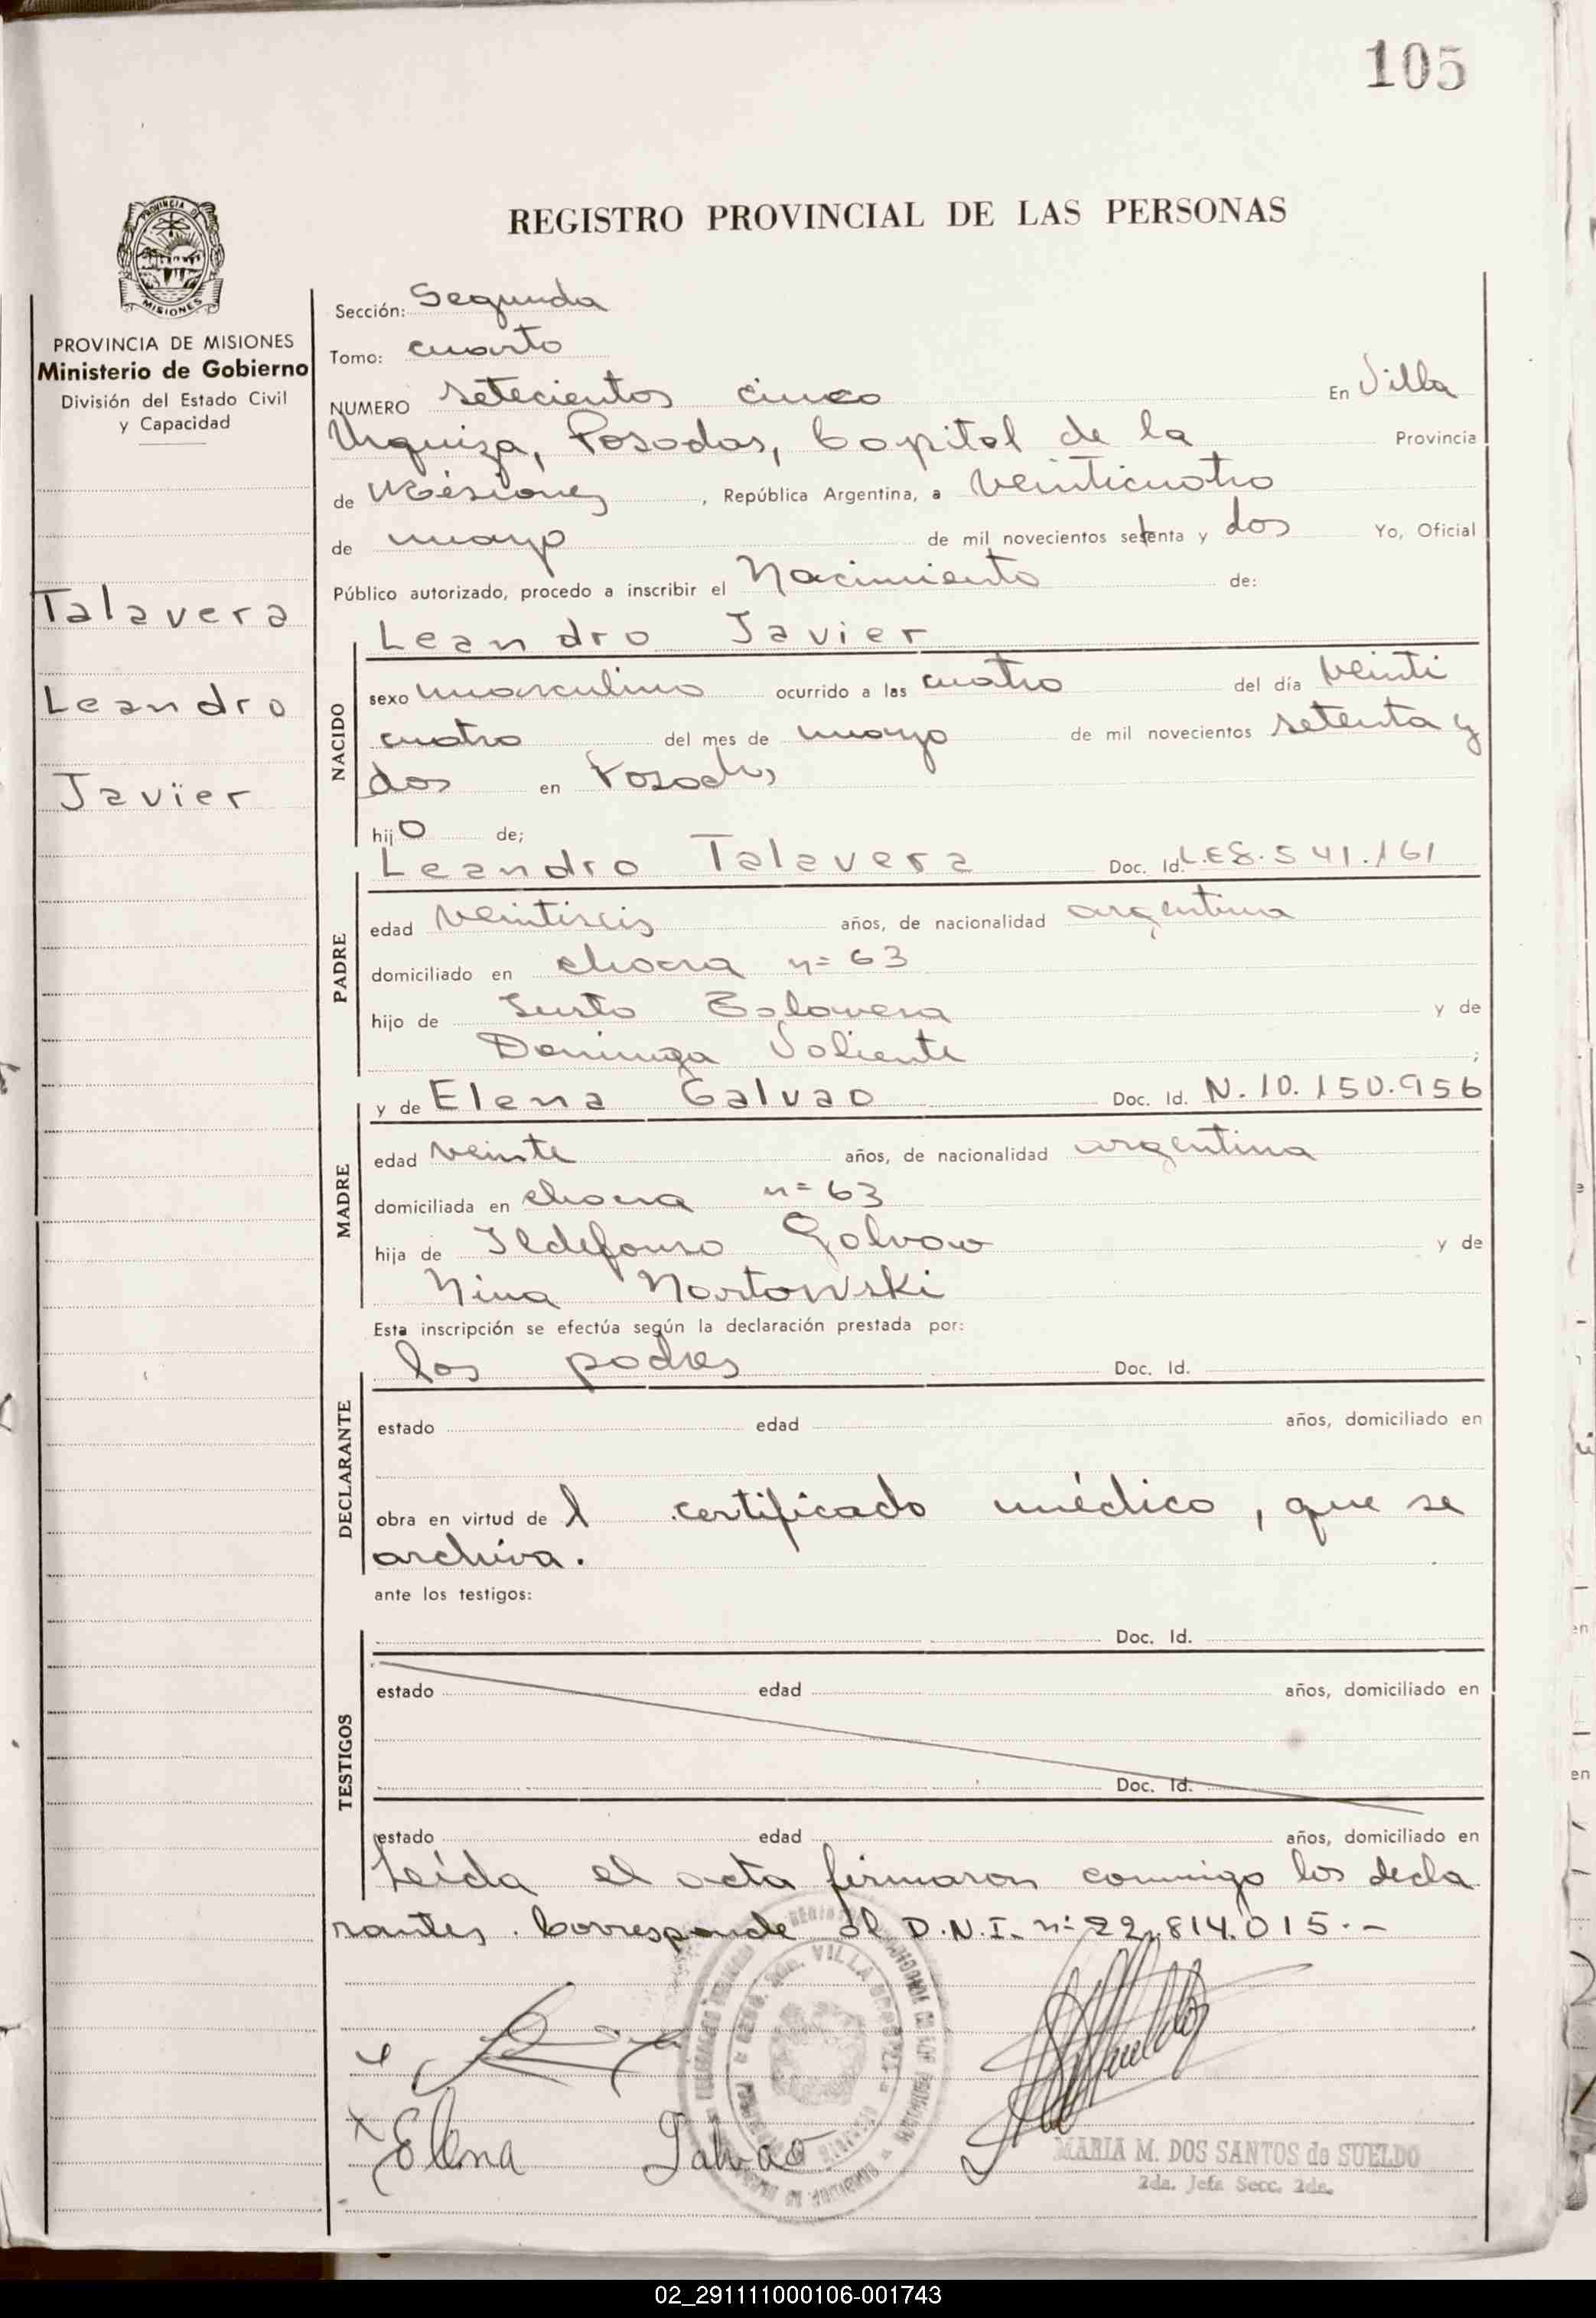 105
REGISTRO PROVINCIAL DE LAS PERSONAS
PROVINCIA DE MISIONES
Ministerio de Gobierno
División del Estado Civil
y Capacidad
Talavera
Leandro
Javier
Sección: Segunda
Tomo: cuarto
NUMERO setecientos cinco En Villa
Urquiza, Posadas, Capital de la Provincia
de Misiones, República Argentina, a veinticuatro
de mayo de mil novecientos setenta y dos Yo, Oficial
Público autorizado, procedo a inscribir el Nacimiento de:
Leandro Javier
NACIDO
sexo masculino ocurrido a las cuatro del día veinti
cuatro del mes de mayo de mil novecientos setenta y
dos en Posadas
hijo de;
Leandro Talavera Doc. Id. L.E 8.541.161
PADRE
edad veintiseis años, de nacionalidad argentina
domiciliado en chacra n= 63
hijo de Justo Talavera y de
Dominga Valiente ;
y de Elena Galvao Doc. Id. N. 10.150.956
MADRE
edad veinte años, de nacionalidad argentina
domiciliada en chacra n= 63
hija de Ildefonso Galvao y de
Nina
Esta inscripción se efectúa según la declaración prestada por:
los padres Doc. Id.
DECLARANTE
estado edad años, domiciliado en
obra en virtud de l certificado médico, que se
archiva.
ante los testigos:
Doc. Id.
TESTIGOS
estado edad años, domiciliado en
Doc. Id.
estado edad años, domiciliado en
Leída el acta firmaron conmigo los decla
rantes. Corresponde al D.N.I. n: 22.814.015.-
Elena Galvao
MARIA M. DOS SANTOS de SUELDO
2da. Jefa Secc. 2da.
02_291111000106-001743